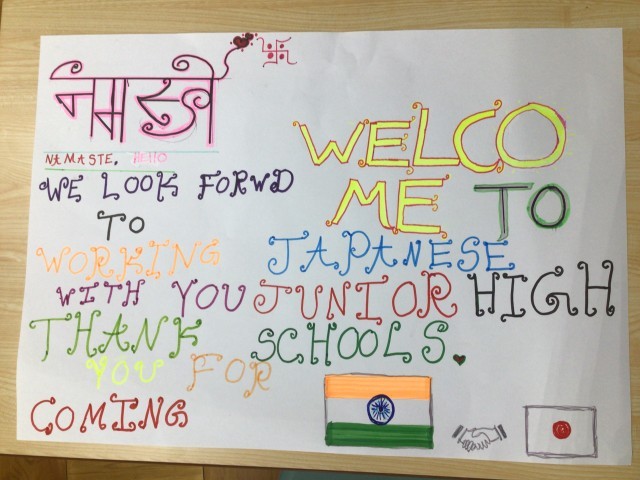 नमस्ते
NAMASTE. HELLO
WE LOOK FORWD
TO
WORKING
WITH YOU
THANK
YOU FOR
COMING
WELCO
ME TO
JAPANESE
JUNIOR HIGH
SCHOOLS.